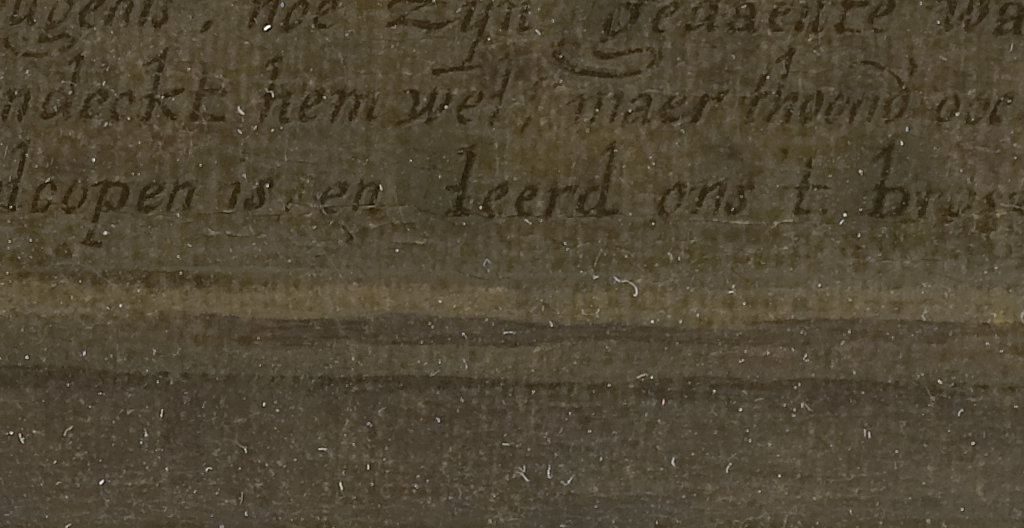 hoe Zijn gedaente wa
ndeckt hem wel, maer thoend ooc
lcopen is, en leerd ons t bros